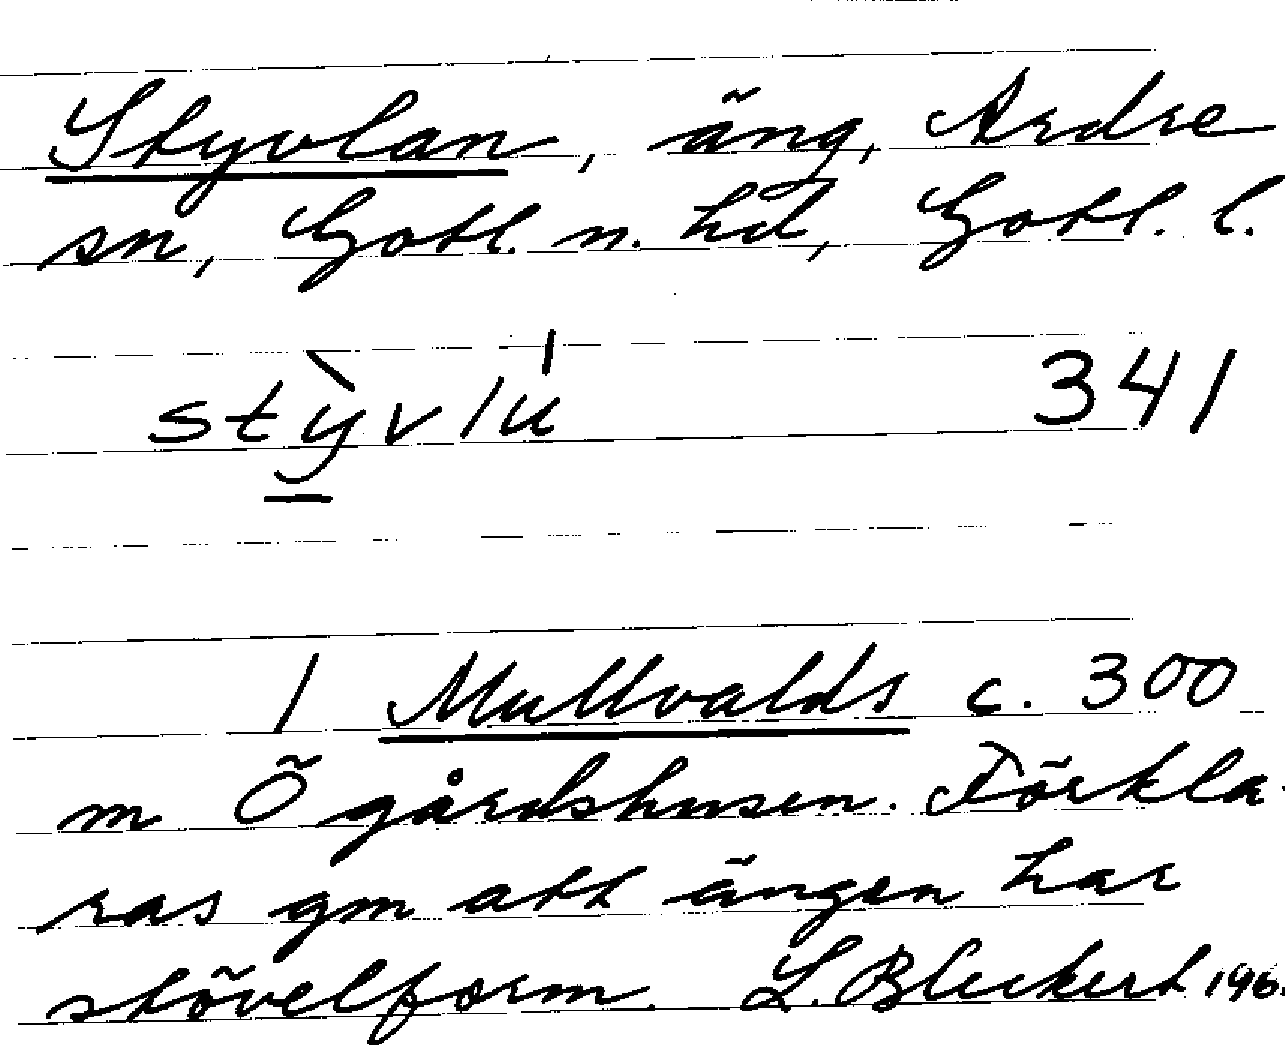 Styvlan, äng, Ardre
sn, Gotl. n. hd, Gotl. l.
stỳvlú 341
1 Mullvalds c. 300
m Ö gårdshusen. Förkla-
ras gm att ängen har
stövelform. L. Bleckert